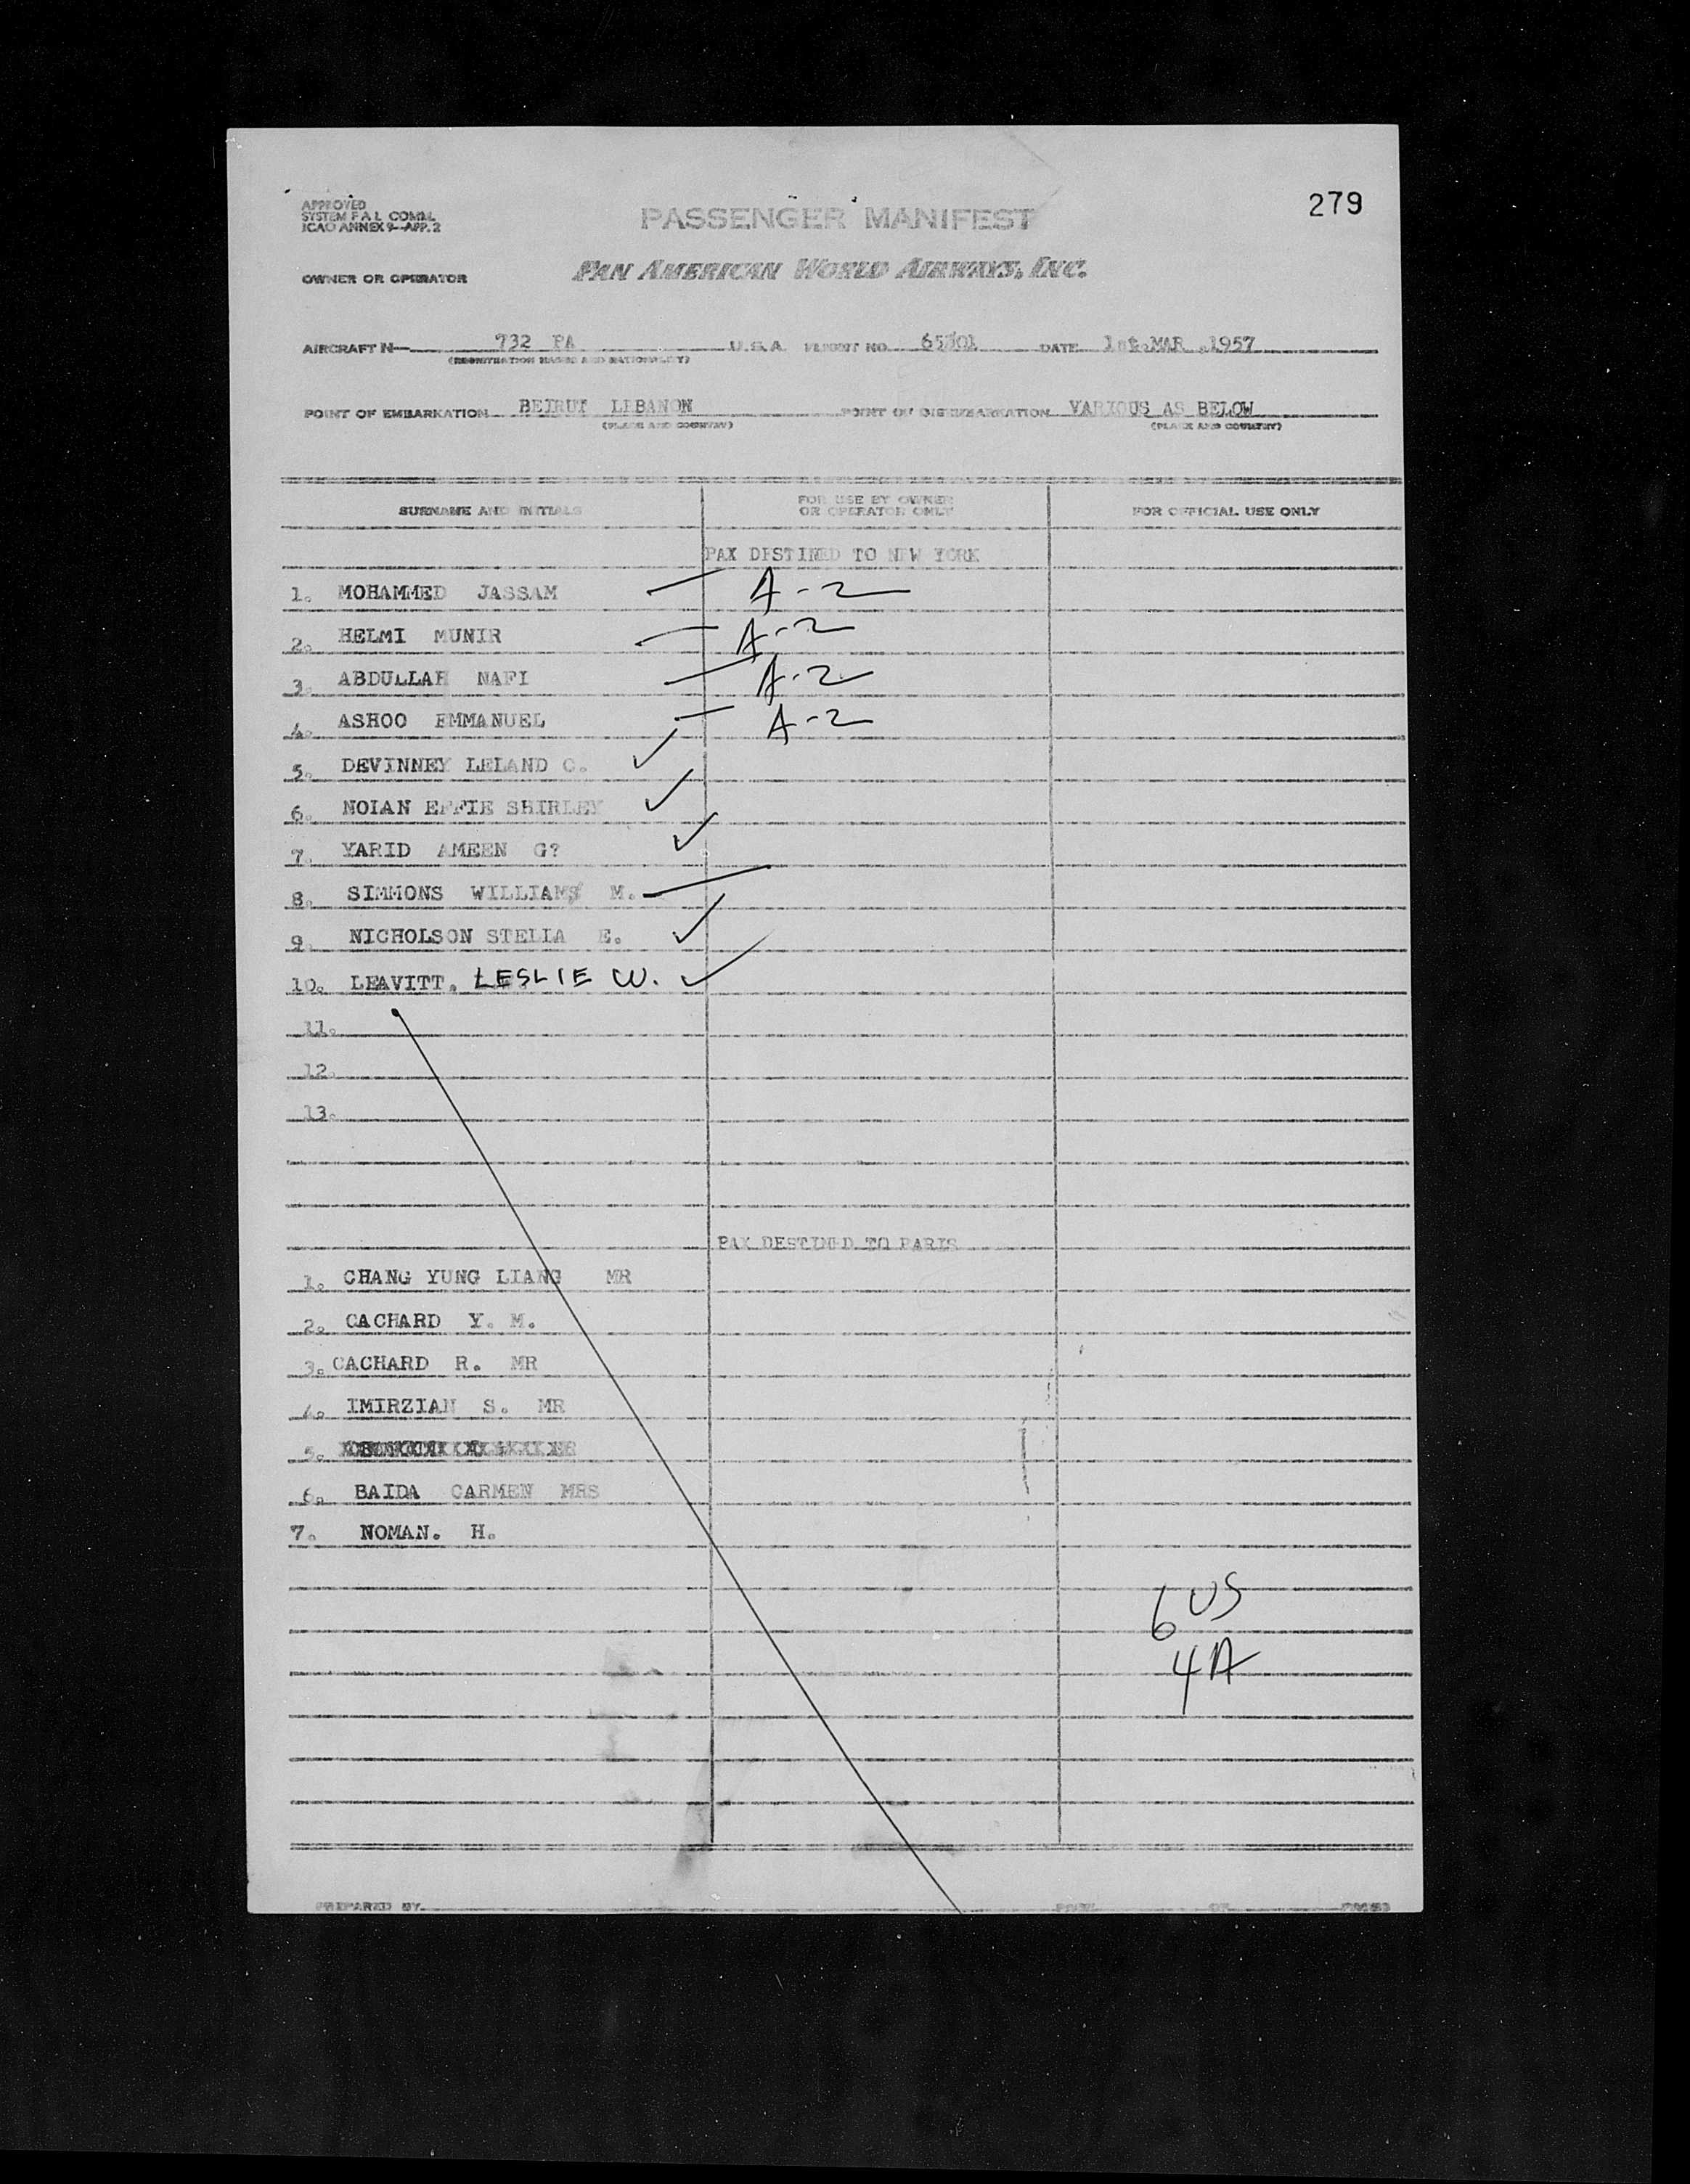 279
APPROVED
SYSTEM F A L COMM.
ICAO ANNEX 9-APP. 2
PASSENGER MANIFEST
OWNER OR OPERATOR PAN AMERICAN WORLD AIRWAYS, INC.
AIRCRAFT N— 732 PA U.S.A. PERMIT NO. DATE 1st.MAR .1957
(REGISTRATION MARKS AND NATIONALITY)
POINT OF EMBARKATION BEIRUT LEBANON POINT OF DISEMBARKATION VARIOUS AS BELOW
(PLACE AND COUNTRY) (PLACE AND COUNTRY)
SURNAME AND INITIALS FOR USE BY OWNER OR OPERATOR ONLY FOR OFFICIAL USE ONLY
PAX DESTINED TO NEW YORK
1. MOHAMMED JASSAM — A-2
2. HELMI MUNIR — A-2
3. ABDULLAH NAFI — A-2
4. ASHOO EMMANUEL — A-2
5. DEVINNEY LELAND C. ✓
6. NOIAN EFFIE SHIRLEY ✓
7. YARID AMEEN G? ✓
8. SIMMONS WILLIAMS M. —
9. NICHOLSON STELIA E. ✓
10. LEAVITT. LESLIE W. ✓
11.
12.
13.
PAX DESTINED TO PARIS
1. CHANG YUNG LIANG MR
2. CACHARD Y. M.
3. CACHARD R. MR
4. IMIRZIAN S. MR
5.
6. BAIDA CARMEN MRS
7. NOMAN. H.
6 US
4A
PREPARED BY OF